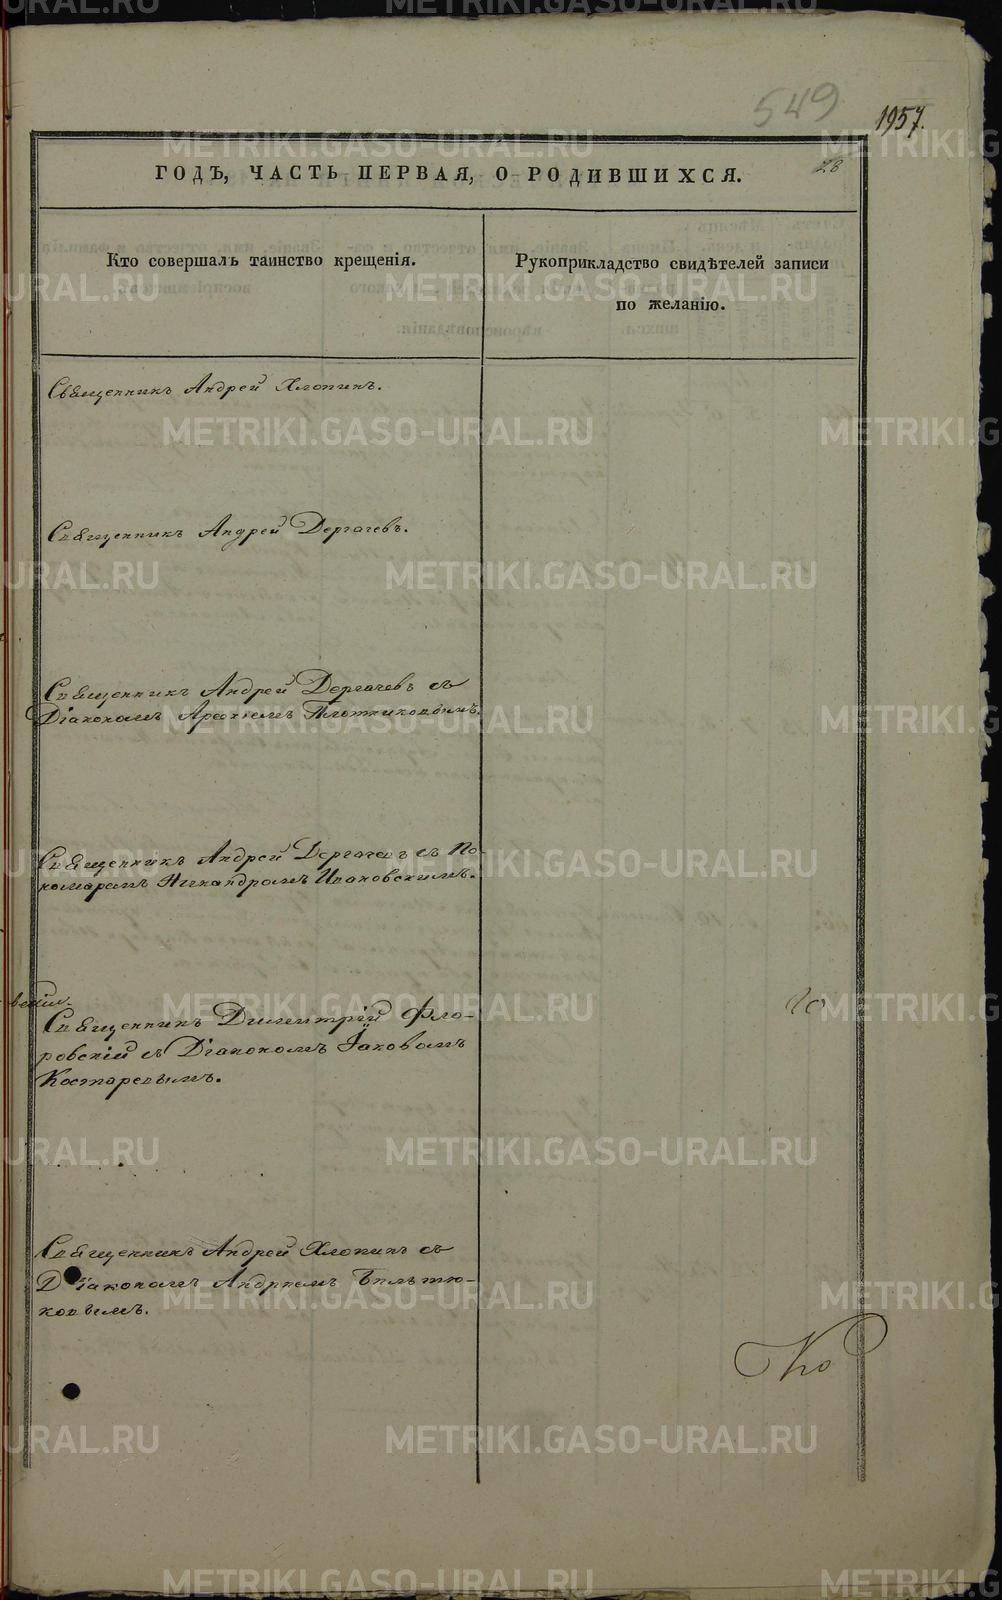 549
1957.
28
ГОДЪ, ЧАСТЬ ПЕРВАЯ, О РОДИВШИХСЯ.
Кто совершалъ таинство крещенія.
Рукоприкладство свидѣтелей записи
по желанію.
Священникъ Андрей Хлопинъ.
Священникъ Андрей Дергачевъ.
Священникъ Андрей Дергачевъ съ
Діакономъ Арсеніемъ Плотниковымъ.
Священникъ Андрей Дергачевъ съ По-
номаремъ Никандромъ Ивановскимъ.
Священникъ Димитрій Фло-
ровскій съ Діакономъ Іаковомъ
Костаревымъ.
Священникъ Андрей Хлопинъ съ
Діакономъ Андреемъ Бильтю-
ковымъ.
METRIKI.GASO-URAL.RU